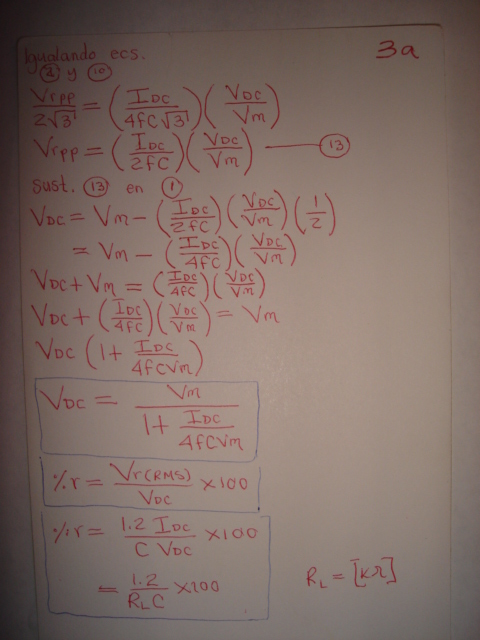 3a
Igualando ecs.
② y ⑩
Vrpp/2√3 = (IDC/4fC√3)(VDC/Vm)
Vrpp = (IDC/2fC)(VDC/Vm) —— ⑬
sust. ⑬ en ①
VDC = Vm - (IDC/2fC)(VDC/Vm)(1/2)
= Vm - (IDC/4fC)(VDC/Vm)
VDC + Vm = (IDC/4fC)(VDC/Vm)
VDC + (IDC/4fC)(VDC/Vm) = Vm
VDC (1 + IDC/4fCVm)
VDC = Vm/(1 + IDC/4fCVm)
%r = Vr(RMS)/VDC × 100
%r = 1.2 IDC/C VDC × 100
= 1.2/RLC × 100
RL = [kΩ]